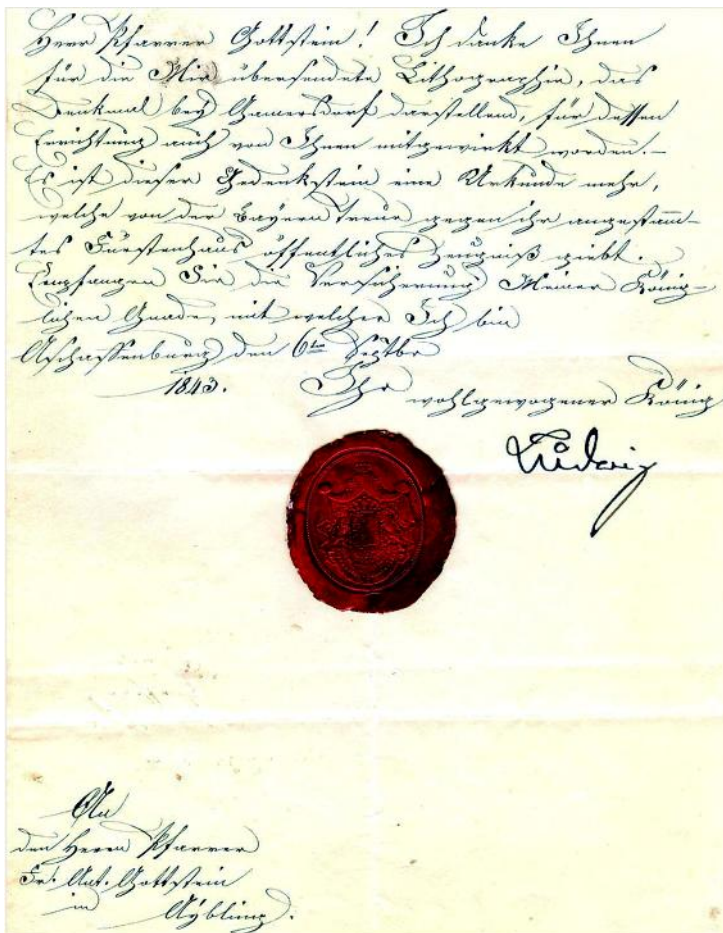 Herr Pfarrer Gottstein! Ich danke Ihnen
für die Mir übersendete Lithographie, das
Denkmal bey Gamersdorf darstellend, für dessen
Errichtung auch von Ihnen mitgewirkt worden.—
Es ist dieser Gedenkstein eine Urkunde mehr,
welche von der Bayern Treue gegen ihr angestamm-
tes Fürstenhaus öffentliches Zeugniß giebt.
Empfangen Sie die Versicherung Meiner König-
lichen Gnade, mit welcher Ich bin
Aschaffenburg den 6ten Septbr
1843. Ihr wohlgewogener König
Ludwig
An
den Herrn Pfarrer
Fr. Ant. Gottstein
in Aybling.